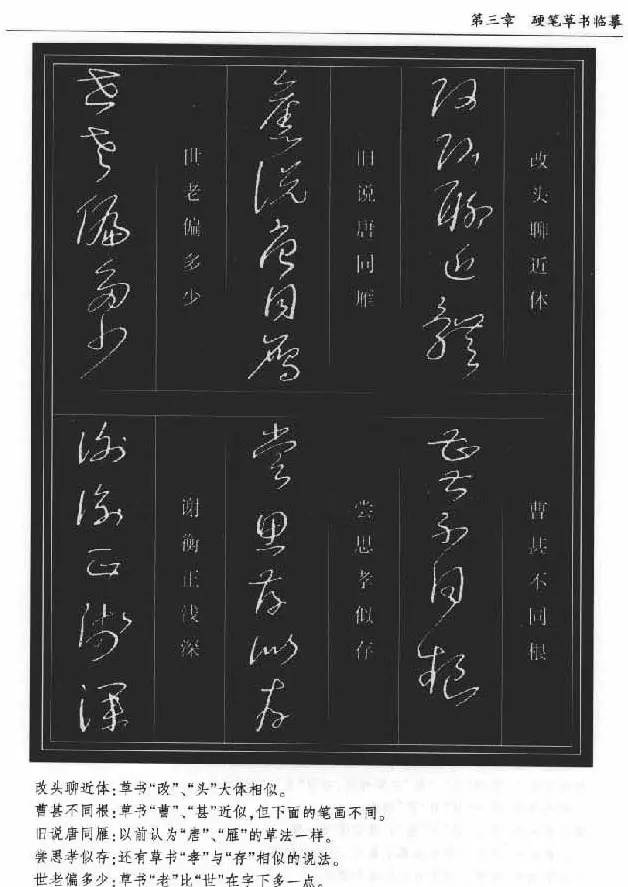 第三章 硬笔草书临摹
改头聊近体
改头聊近体
曹甚不同根
曹甚不同根
旧说唐同雁
旧说唐同雁
尝思孝似存
尝思孝似存
世老偏多少
世老偏多少
谢衡正浅深
谢衡正浅深
改头聊近体:草书“改”、“头”大体相似。
曹甚不同根:草书“曹”、“甚”近似,但下面的笔画不同。
旧说唐同雁:以前认为“唐”、“雁”的草法一样。
尝思孝似存:还有草书“孝”与“存”相似的说法。
世老偏多少:草书“老”比“世”在字下多一点。